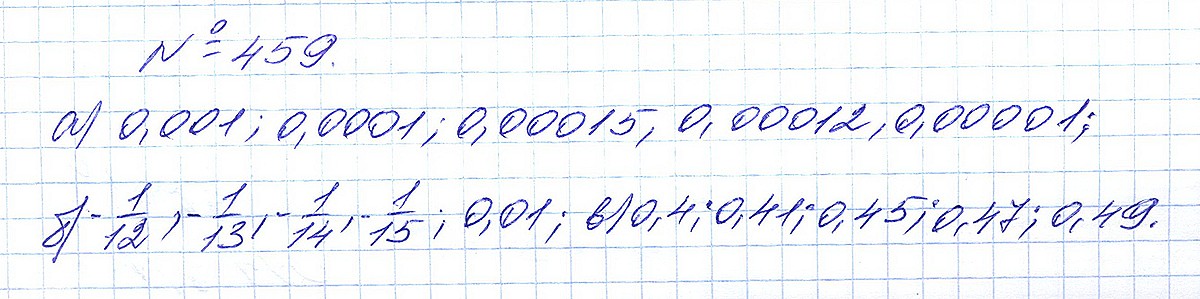 № 459.
а) 0,001; 0,0001; 0,00015, 0,00012, 0,00001;
б) -1/12, -1/13, -1/14, -1/15; 0,01; в) 0,4; 0,41; 0,45; 0,47; 0,49.